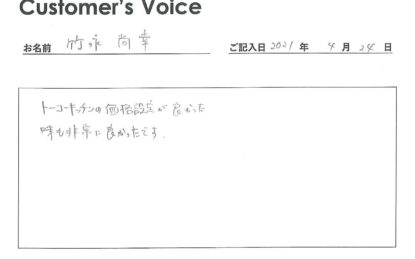 Customer's Voice
お名前 竹永 尚幸 ご記入日 2021 年 4 月 24 日
トーコーキッチンの価格設定が良かった
味も非常に良かったです。